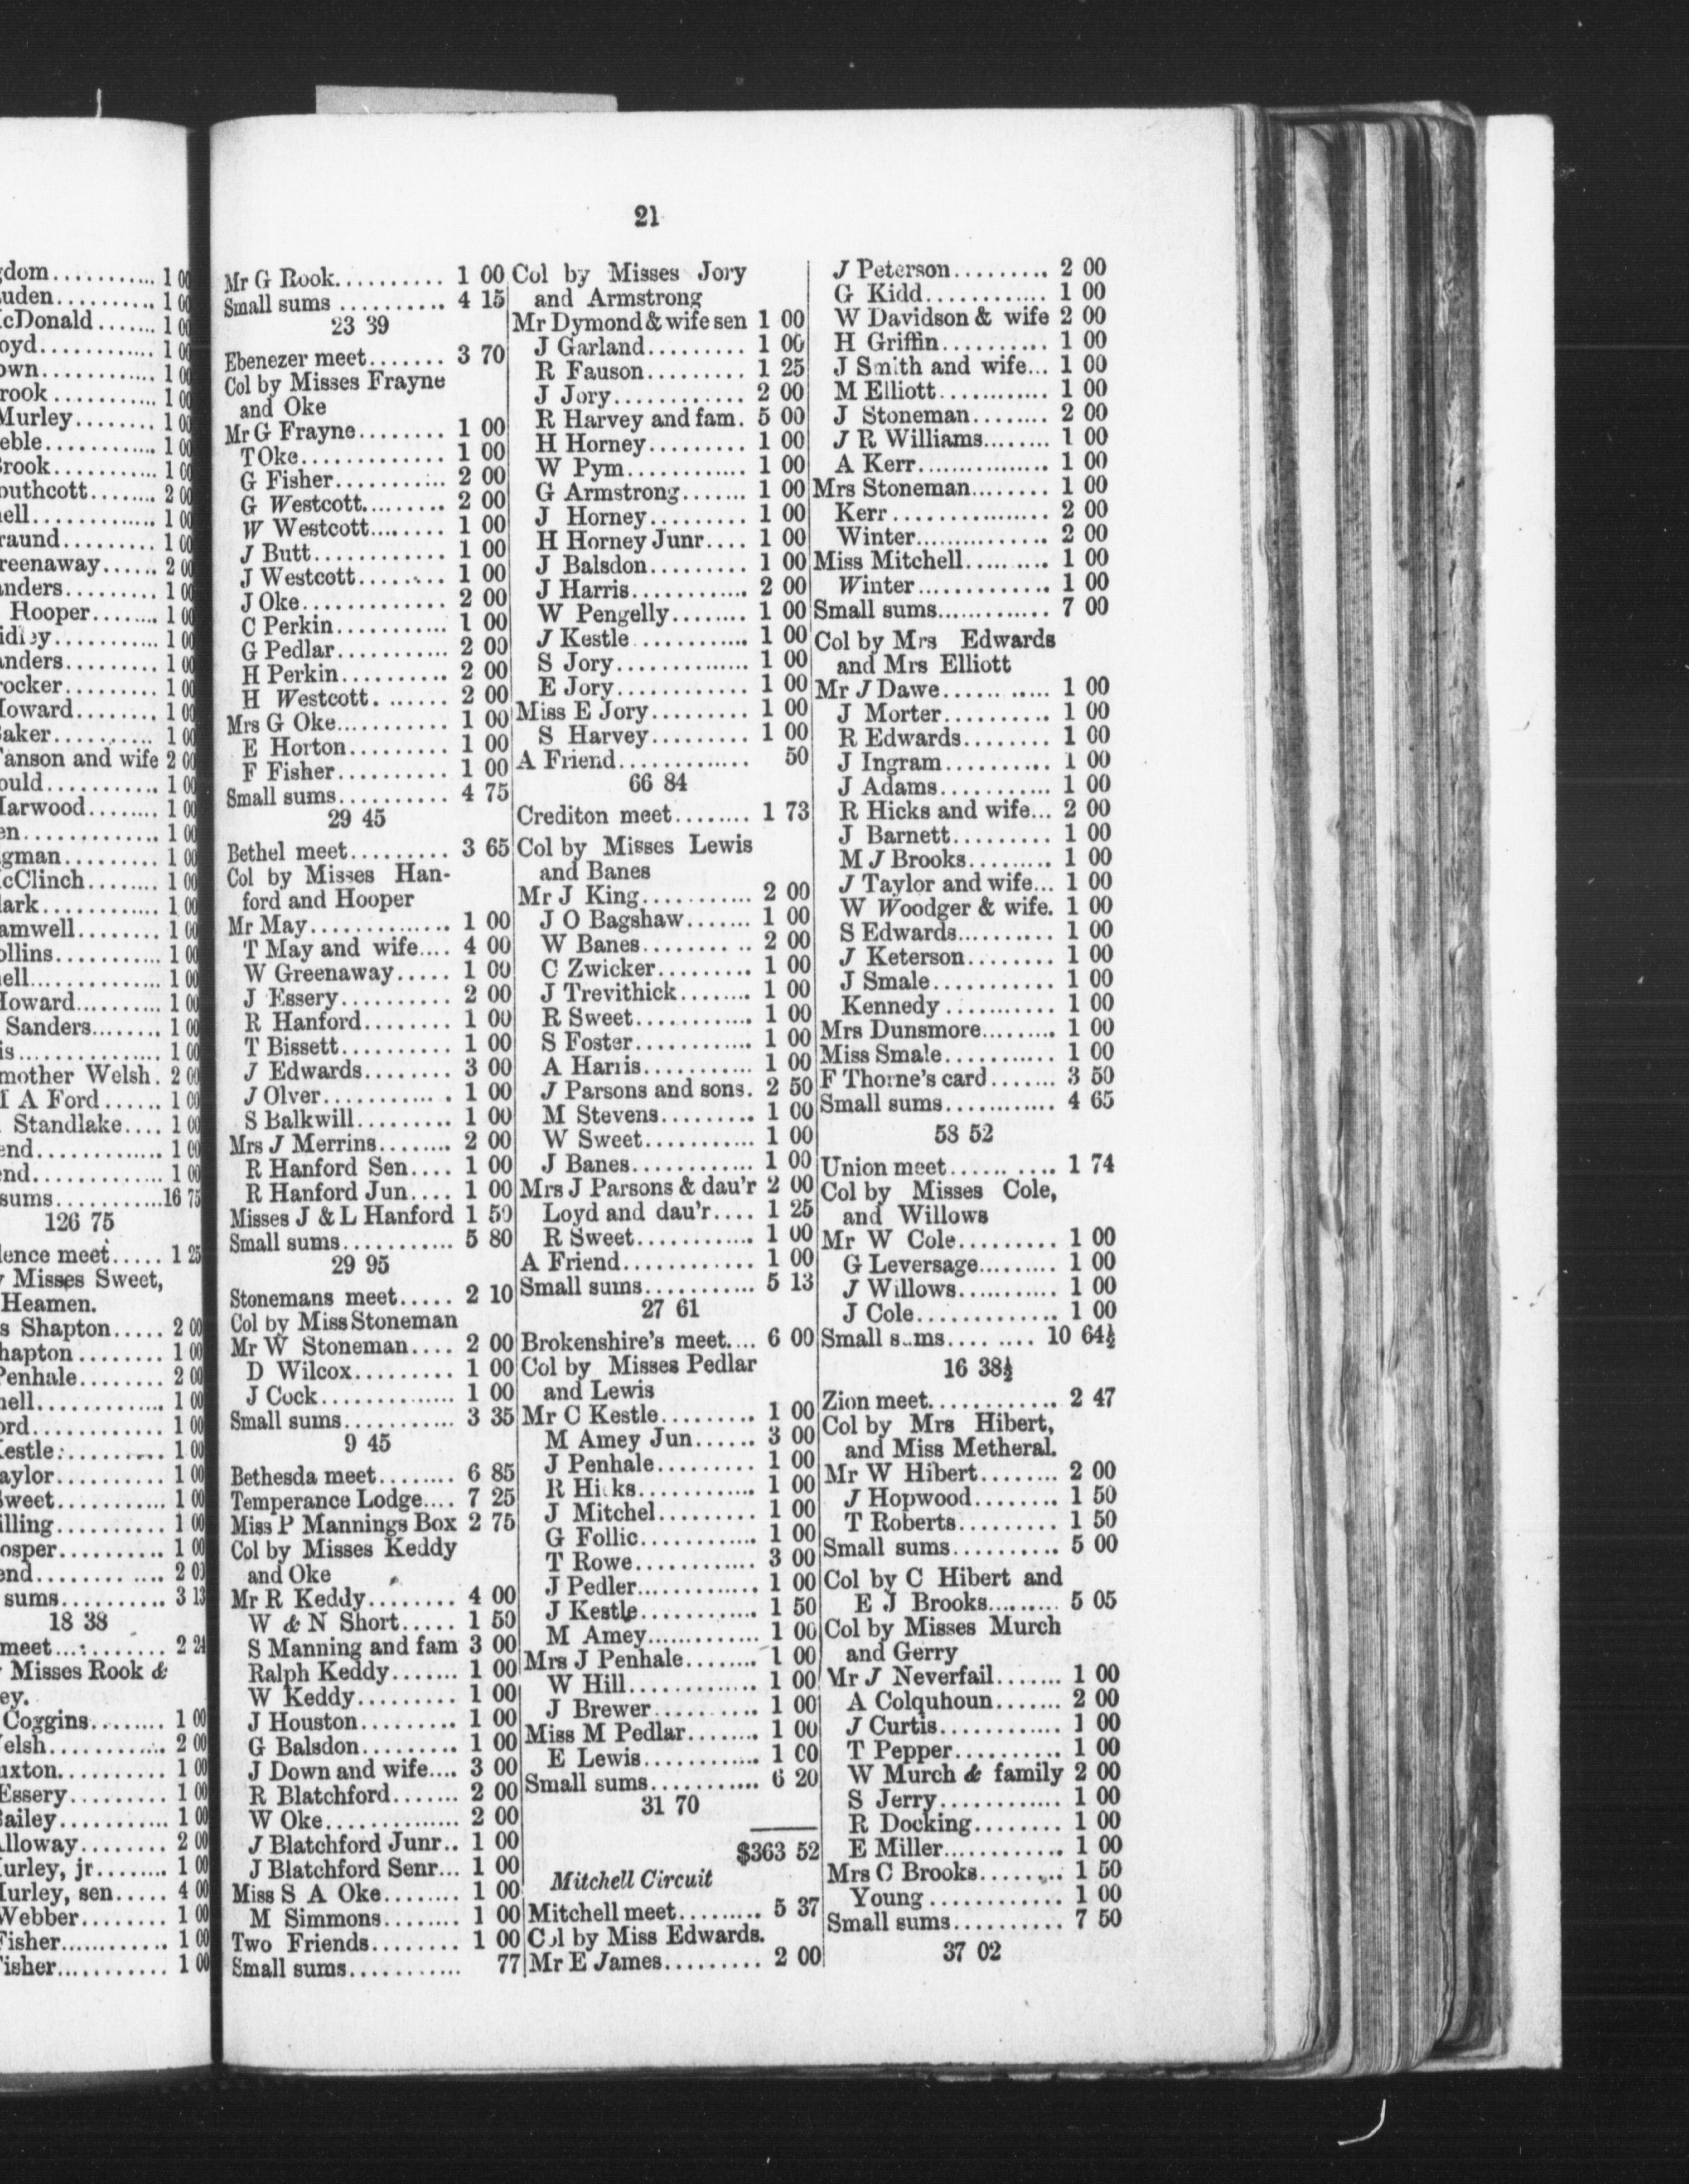 21
dom........... 1 00
uden.......... 1 00
cDonald....... 1 00
oyd............ 1 00
own............ 1 00
rook ........... 1 00
Murley........ 1 00
eble............ 1 00
rook........... 1 00
outhcott....... 2 00
ell............. 1 00
raund......... 1 00
reenaway...... 2 00
nders.......... 1 00
Hooper........ 1 00
idley........... 1 00
nders.......... 1 00
ocker.......... 1 00
oward........ 1 00
aker........... 1 00
anson and wife 2 00
ould........... 1 00
arwood........ 1 00
en............. 1 00
gman.......... 1 00
cClinch........ 1 00
lark............ 1 00
amwell........ 1 00
ollins........... 1 00
ell.............. 1 00
oward.......... 1 00
Sanders........ 1 00
is............... 1 00
mother Welsh. 2 00
A Ford...... 1 00
Standlake.... 1 00
end............. 1 00
nd.............. 1 00
sums...........16 75
126 75
lence meet..... 1 25
Misses Sweet,
Heamen.
s Shapton..... 2 00
hapton ........ 1 00
Penhale........ 2 00
ell............. 1 00
ord............ 1 00
estle........... 1 00
aylor.......... 1 00
weet........... 1 00
illing.......... 1 00
osper.......... 1 00
end............ 2 00
sums.......... 3 13
18 38
meet........... 2 24
Misses Rook &
ey.
Coggins........ 1 00
elsh............ 2 00
uxton.......... 1 00
Essery......... 1 00
ailey........... 1 00
lloway......... 2 00
urley, jr....... 1 00
urley, sen..... 4 00
Webber........ 1 00
isher........... 1 00
isher........... 1 00
Mr G Rook.......... 1 00
Small sums .......... 4 15
23 39
Ebenezer meet....... 3 70
Col by Misses Frayne
and Oke
Mr G Frayne........ 1 00
T Oke............. 1 00
G Fisher........... 2 00
G Westcott......... 2 00
W Westcott........ 1 00
J Butt............ 1 00
J Westcott........ 1 00
J Oke............. 2 00
C Perkin........... 1 00
G Pedlar........... 2 00
H Perkin.......... 2 00
H Westcott........ 2 00
Mrs G Oke........... 1 00
E Horton......... 1 00
F Fisher.......... 1 00
Small sums.......... 4 75
29 45
Bethel meet......... 3 65
Col by Misses Han-
ford and Hooper
Mr May............. 1 00
T May and wife.... 4 00
W Greenaway..... 1 00
J Essery.......... 2 00
R Hanford........ 1 00
T Bissett.......... 1 00
J Edwards........ 3 00
J Olver............ 1 00
S Balkwill......... 1 00
Mrs J Merrins........ 2 00
R Hanford Sen.... 1 00
R Hanford Jun.... 1 00
Misses J & L Hanford 1 50
Small sums........... 5 80
29 95
Stonemans meet..... 2 10
Col by Miss Stoneman
Mr W Stoneman.... 2 00
D Wilcox......... 1 00
J Cock............. 1 00
Small sums........... 3 35
9 45
Bethesda meet........ 6 85
Temperance Lodge.... 7 25
Miss P Mannings Box 2 75
Col by Misses Keddy
and Oke
Mr R Keddy........ 4 00
W & N Short..... 1 50
S Manning and fam 3 00
Ralph Keddy....... 1 00
W Keddy......... 1 00
J Houston......... 1 00
G Balsdon......... 1 00
J Down and wife.... 3 00
R Blatchford....... 2 00
W Oke............. 2 00
J Blatchford Junr.. 1 00
J Blatchford Senr... 1 00
Miss S A Oke........ 1 00
M Simmons........ 1 00
Two Friends........ 1 00
Small sums........... 77
Col by Misses Jory
and Armstrong
Mr Dymond & wife sen 1 00
J Garland......... 1 00
R Fauson......... 1 25
J Jory............ 2 00
R Harvey and fam. 5 00
H Horney......... 1 00
W Pym............ 1 00
G Armstrong....... 1 00
J Horney......... 1 00
H Horney Junr.... 1 00
J Balsdon......... 1 00
J Harris............ 2 00
W Pengelly........ 1 00
J Kestle............ 1 00
S Jory............. 1 00
E Jory............ 1 00
Miss E Jory......... 1 00
S Harvey......... 1 00
A Friend............ 50
66 84
Crediton meet........ 1 73
Col by Misses Lewis
and Banes
Mr J King........... 2 00
J O Bagshaw....... 1 00
W Banes.......... 2 00
C Zwicker......... 1 00
J Trevithick....... 1 00
R Sweet............ 1 00
S Foster........... 1 00
A Harris........... 1 00
J Parsons and sons. 2 50
M Stevens......... 1 00
W Sweet........... 1 00
J Banes............ 1 00
Mrs J Parsons & dau'r 2 00
Loyd and dau'r.... 1 25
R Sweet............ 1 00
A Friend............ 1 00
Small sums........... 5 13
27 61
Brokenshire's meet.... 6 00
Col by Misses Pedlar
and Lewis
Mr C Kestle......... 1 00
M Amey Jun...... 3 00
J Penhale......... 1 00
R Hicks............ 1 00
J Mitchel......... 1 00
G Follic............ 1 00
T Rowe............ 3 00
J Pedler............ 1 00
J Kestle............ 1 50
M Amey............. 1 00
Mrs J Penhale........ 1 00
W Hill............. 1 00
J Brewer.......... 1 00
Miss M Pedlar........ 1 00
E Lewis............ 1 00
Small sums........... 6 20
31 70
$363 52
Mitchell Circuit
Mitchell meet......... 5 37
Col by Miss Edwards.
Mr E James......... 2 00
J Peterson......... 2 00
G Kidd............ 1 00
W Davidson & wife 2 00
H Griffin.......... 1 00
J Smith and wife... 1 00
M Elliott............ 1 00
J Stoneman........ 2 00
J R Williams........ 1 00
A Kerr................ 1 00
Mrs Stoneman........ 1 00
Kerr ................ 2 00
Winter.............. 2 00
Miss Mitchell.......... 1 00
Winter............. 1 00
Small sums............. 7 00
Col by Mrs Edwards
and Mrs Elliott
Mr J Dawe........... 1 00
J Morter.......... 1 00
R Edwards........ 1 00
J Ingram.......... 1 00
J Adams........... 1 00
R Hicks and wife... 2 00
J Barnett.......... 1 00
M J Brooks......... 1 00
J Taylor and wife... 1 00
W Woodger & wife. 1 00
S Edwards.......... 1 00
J Keterson........ 1 00
J Smale........... 1 00
Kennedy ........... 1 00
Mrs Dunsmore......... 1 00
Miss Smale........... 1 00
F Thorne's card....... 3 50
Small sums............ 4 65
53 52
Union meet.......... 1 74
Col by Misses Cole,
and Willows
Mr W Cole......... 1 00
G Leversage......... 1 00
J Willows........... 1 00
J Cole............. 1 00
Small sums......... 10 64½
16 38½
Zion meet............ 2 47
Col by Mrs Hibert,
and Miss Metheral.
Mr W Hibert........ 2 00
J Hopwood........ 1 50
T Roberts......... 1 50
Small sums.......... 5 00
Col by C Hibert and
E J Brooks......... 5 05
Col by Misses Murch
and Gerry
Mr J Neverfail....... 1 00
A Colquhoun....... 2 00
J Curtis............ 1 00
T Pepper.......... 1 00
W Murch & family 2 00
S Jerry............ 1 00
R Docking........ 1 00
E Miller............ 1 00
Mrs C Brooks........ 1 50
Young ............ 1 00
Small sums.......... 7 50
37 02